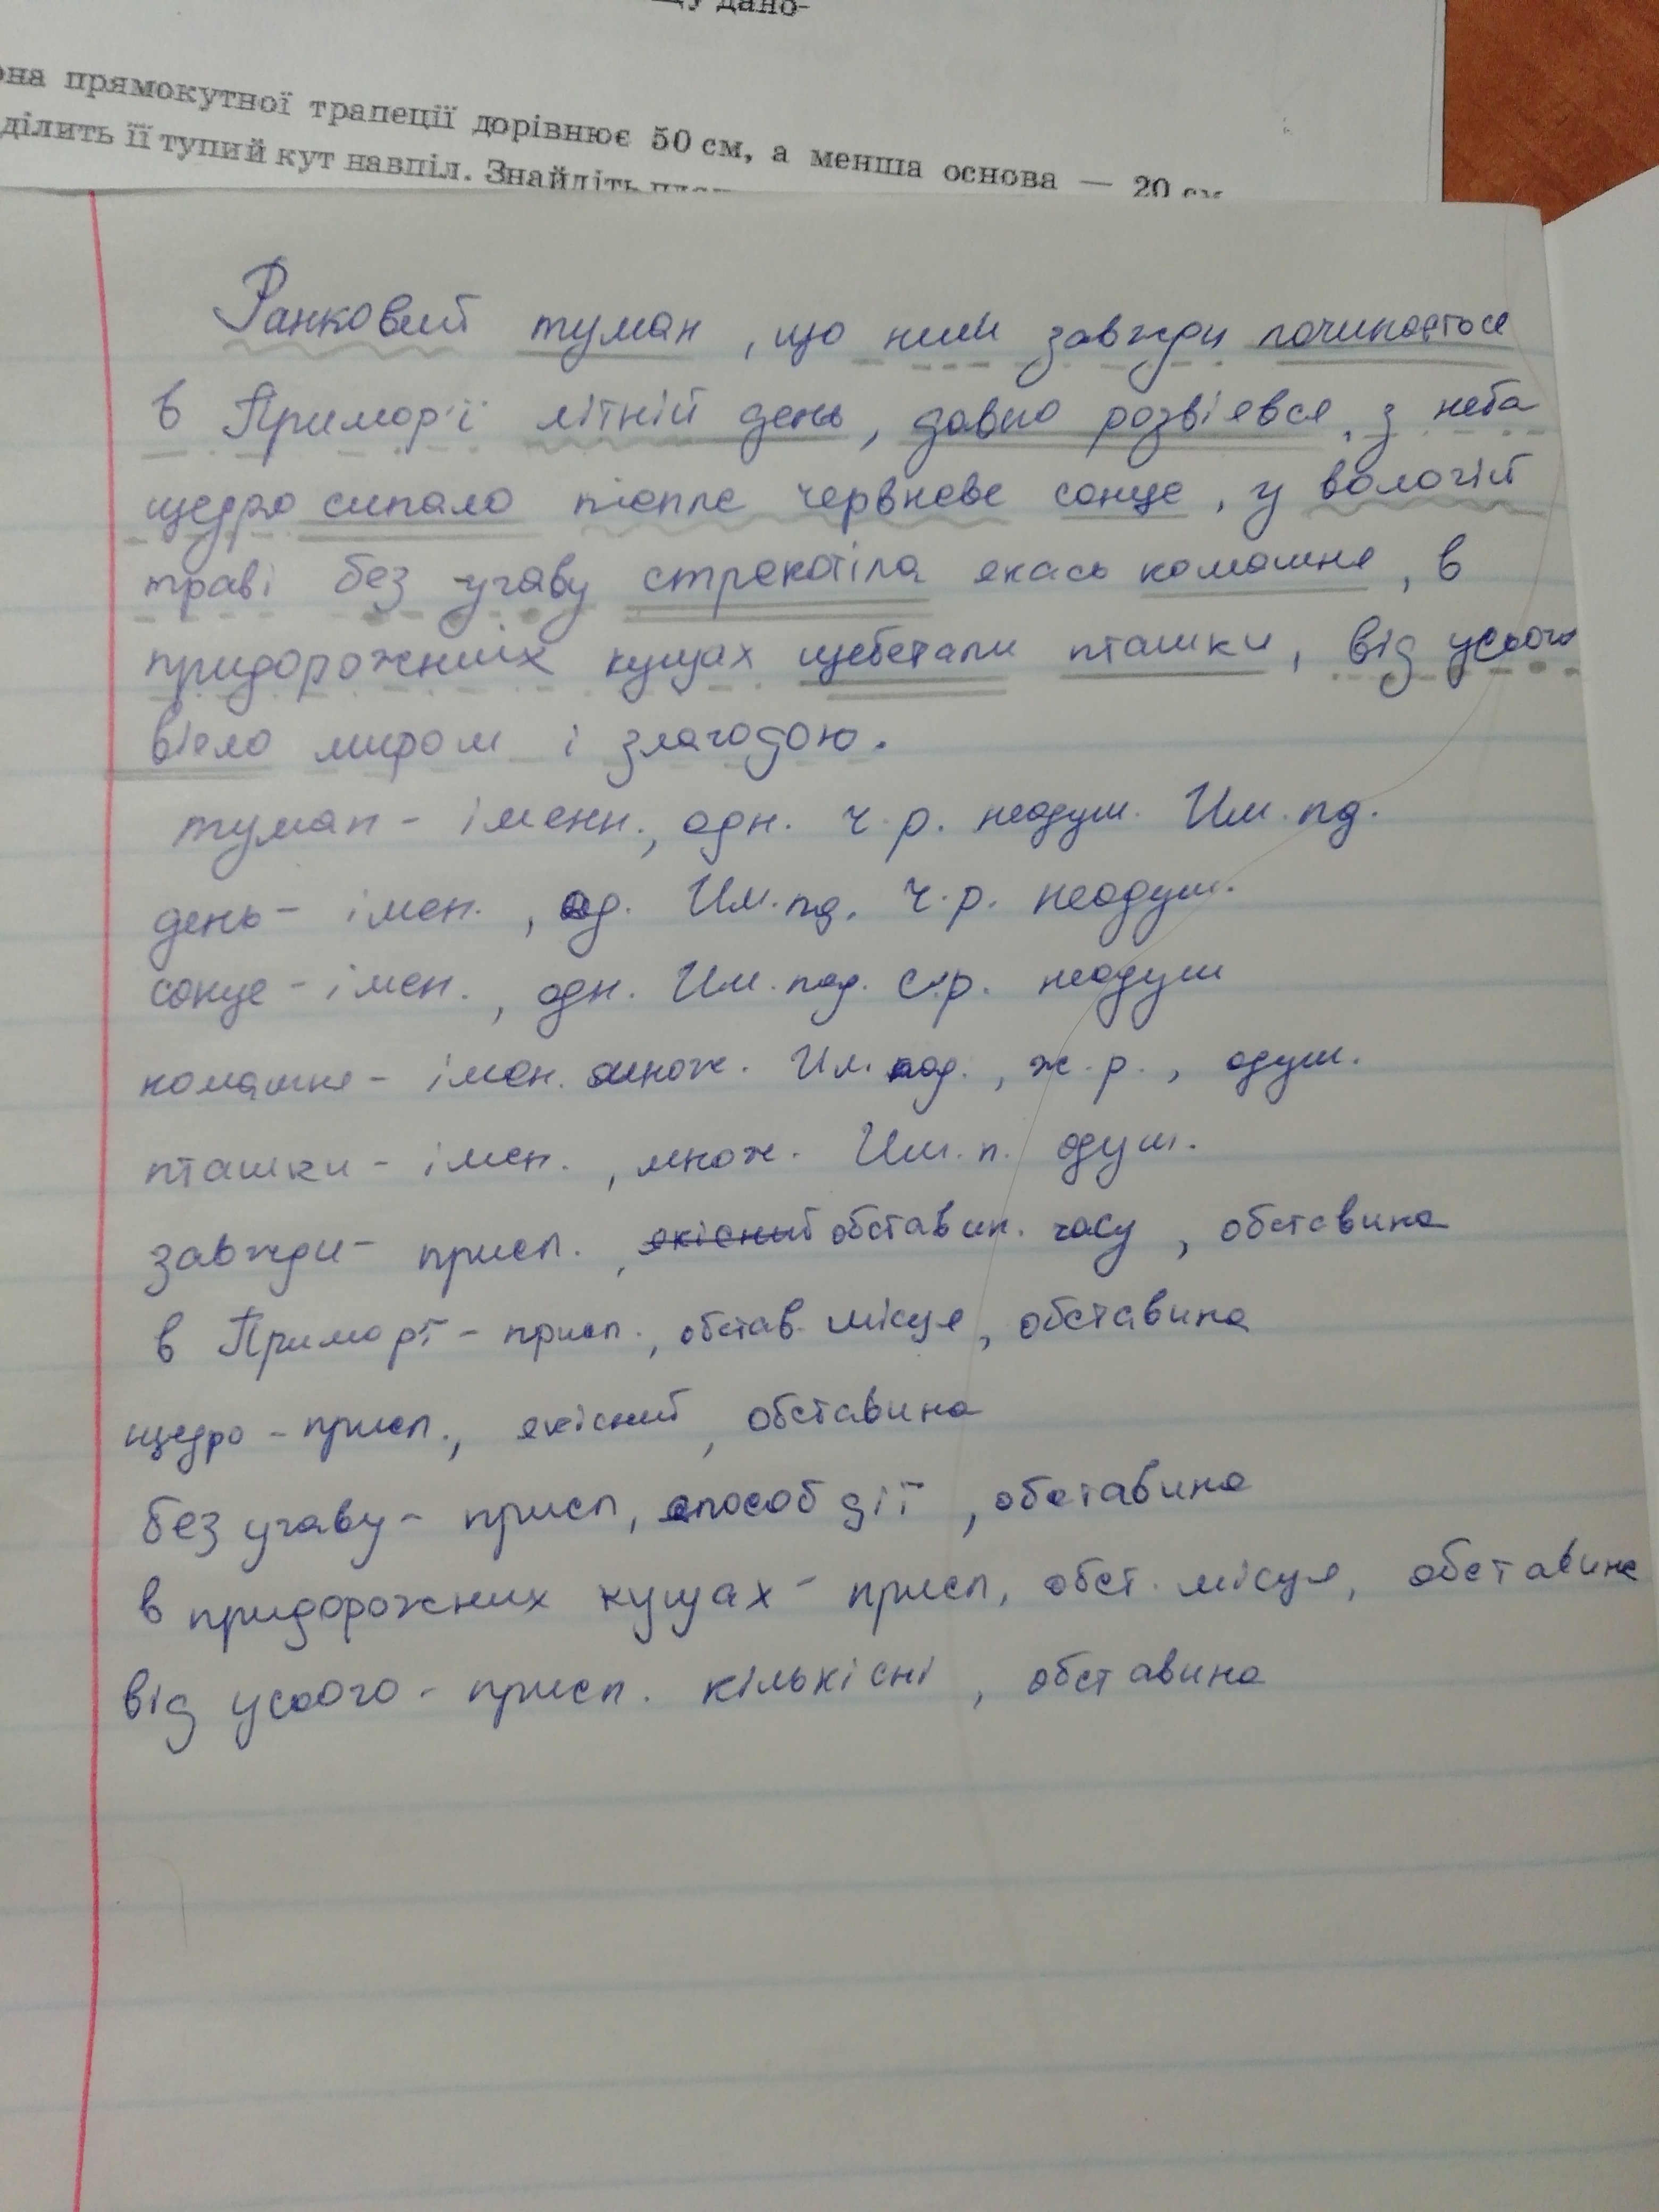 щу дано-
она прямокутної трапеції дорівнює 50 см, а менша основа — 20 см
ділить її тупий кут навпіл. Знайдіть
Ранковий туман, що ним завжди починається
в Примор'ї літній день, давно розвіявся, з неба
щедро сипало тепле червневе сонце, у вологій
траві без угаву стрекотіла якась комашня, в
придорожніх кущах щебетали пташки, від усього
віяло миром і злагодою.
туман - іменн., одн. ч.р. неодуш. Им. пд.
день - імен., од. Им. пд. ч.р. неодуш.
сонце - імен., одн. Им. пад. с.р. неодуш
комашня - імен. множ. Им. пад., ж.р., одуш.
пташки - імен., множ. Им. п. одуш.
завжди - присл., якісний обставин. часу, обставина
в Примор'ї - присл., обстав. місця, обставина
щедро - присл., якісний, обставина
без угаву - присл, способ дії, обставина
в придорожних кущах - присл, обст. місця, обставина
від усього - присл. кількісні, обставина